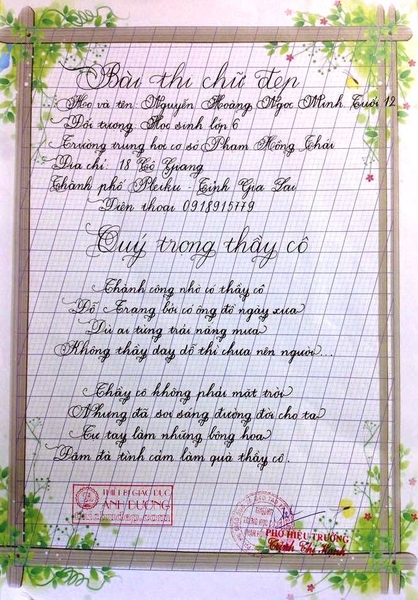 Bài thi chữ đẹp
Họ và tên: Nguyễn Hoàng Ngọc Minh Tuổi 12
Đối tượng: Học sinh lớp 6
Trường trung học cơ sở Phạm Hồng Thái
Địa chỉ: 18 Cô Giang
Thành phố Pleiku - Tỉnh Gia Lai
Điện thoại 0918915779
Quý trọng thầy cô
Thành công nhờ có thầy cô
Đỗ Trạng bởi có ông đồ ngày xưa
Dù ai từng trải nắng mưa
Không thầy dạy dỗ thì chưa nên người...
Thầy cô không phải mặt trời
Nhưng đã soi sáng đường đời cho ta
Tự tay làm những bông hoa
Đậm đà tình cảm làm quà thầy cô.
THIẾT BỊ GIÁO DỤC
ÁNH DƯƠNG
PHÓ HIỆU TRƯỞNG
Trịnh Thị Hạnh